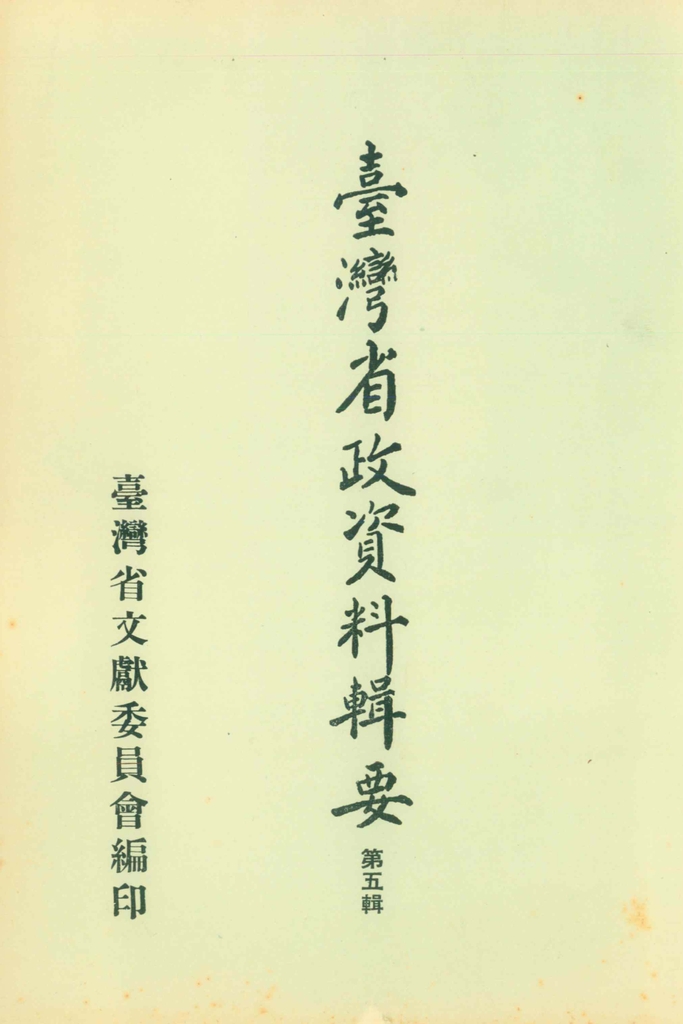 臺灣省政資料輯要
第五輯
臺灣省文獻委員會編印